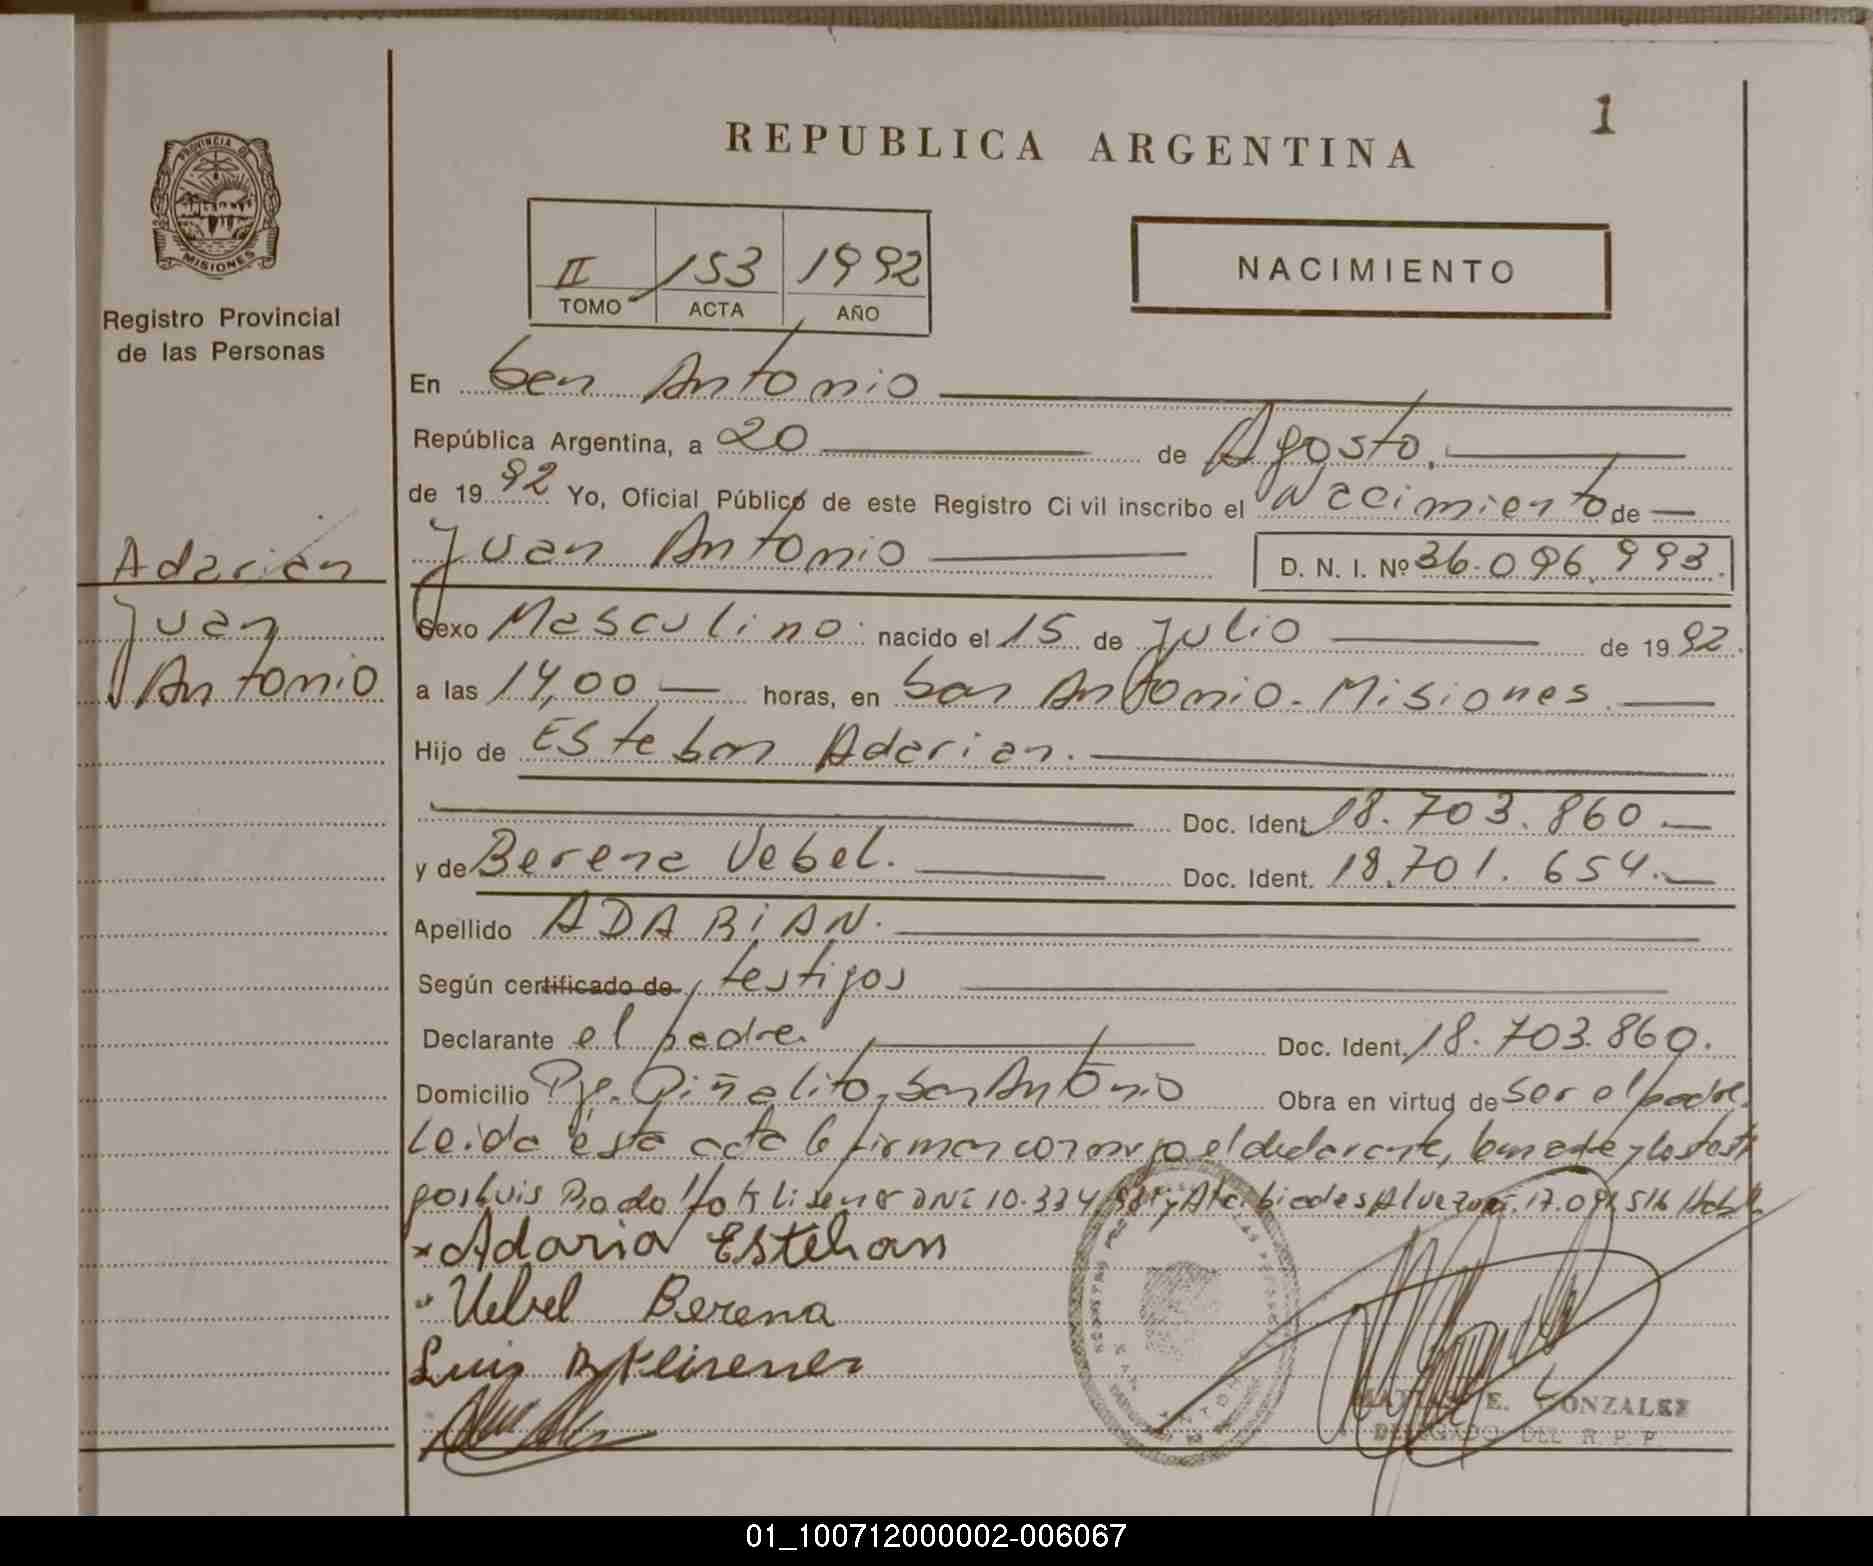 1
REPUBLICA ARGENTINA
PROVINCIA DE
MISIONES
Registro Provincial
de las Personas
II 153 1992
TOMO ACTA AÑO
NACIMIENTO
En San Antonio
República Argentina, a 20 de Agosto.
de 1992 Yo, Oficial Público de este Registro Civil inscribo el Nacimiento de
Adarian
Juan
Antonio
Juan Antonio D. N. I. Nº 36.096.993.
Sexo Masculino. nacido el 15 de Julio de 1992.
a las 14,00 horas, en San Antonio. Misiones.
Hijo de Esteban Adarian.
Doc. Ident. 18.703.860.
y de Berena Uebel. Doc. Ident. 18.701.654.
Apellido ADARIAN.
Según certificado de testigos
Declarante el padre. Doc. Ident. 18.703.860.
Domicilio Pje. Piñalito, San Antonio Obra en virtud de ser el padre.
Leida esta acta la firman conmigo el declarante, la madre y los testi
gos Luis Rodolfo Klisener DNI 10.334. y Alcibiades Alvez 17.091.516
x Adaria Esteban
Uebel Berena
Luis R Klisener
MATIAS E. GONZALEZ
DELEGADO DEL R. P. P.
01_100712000002-006067